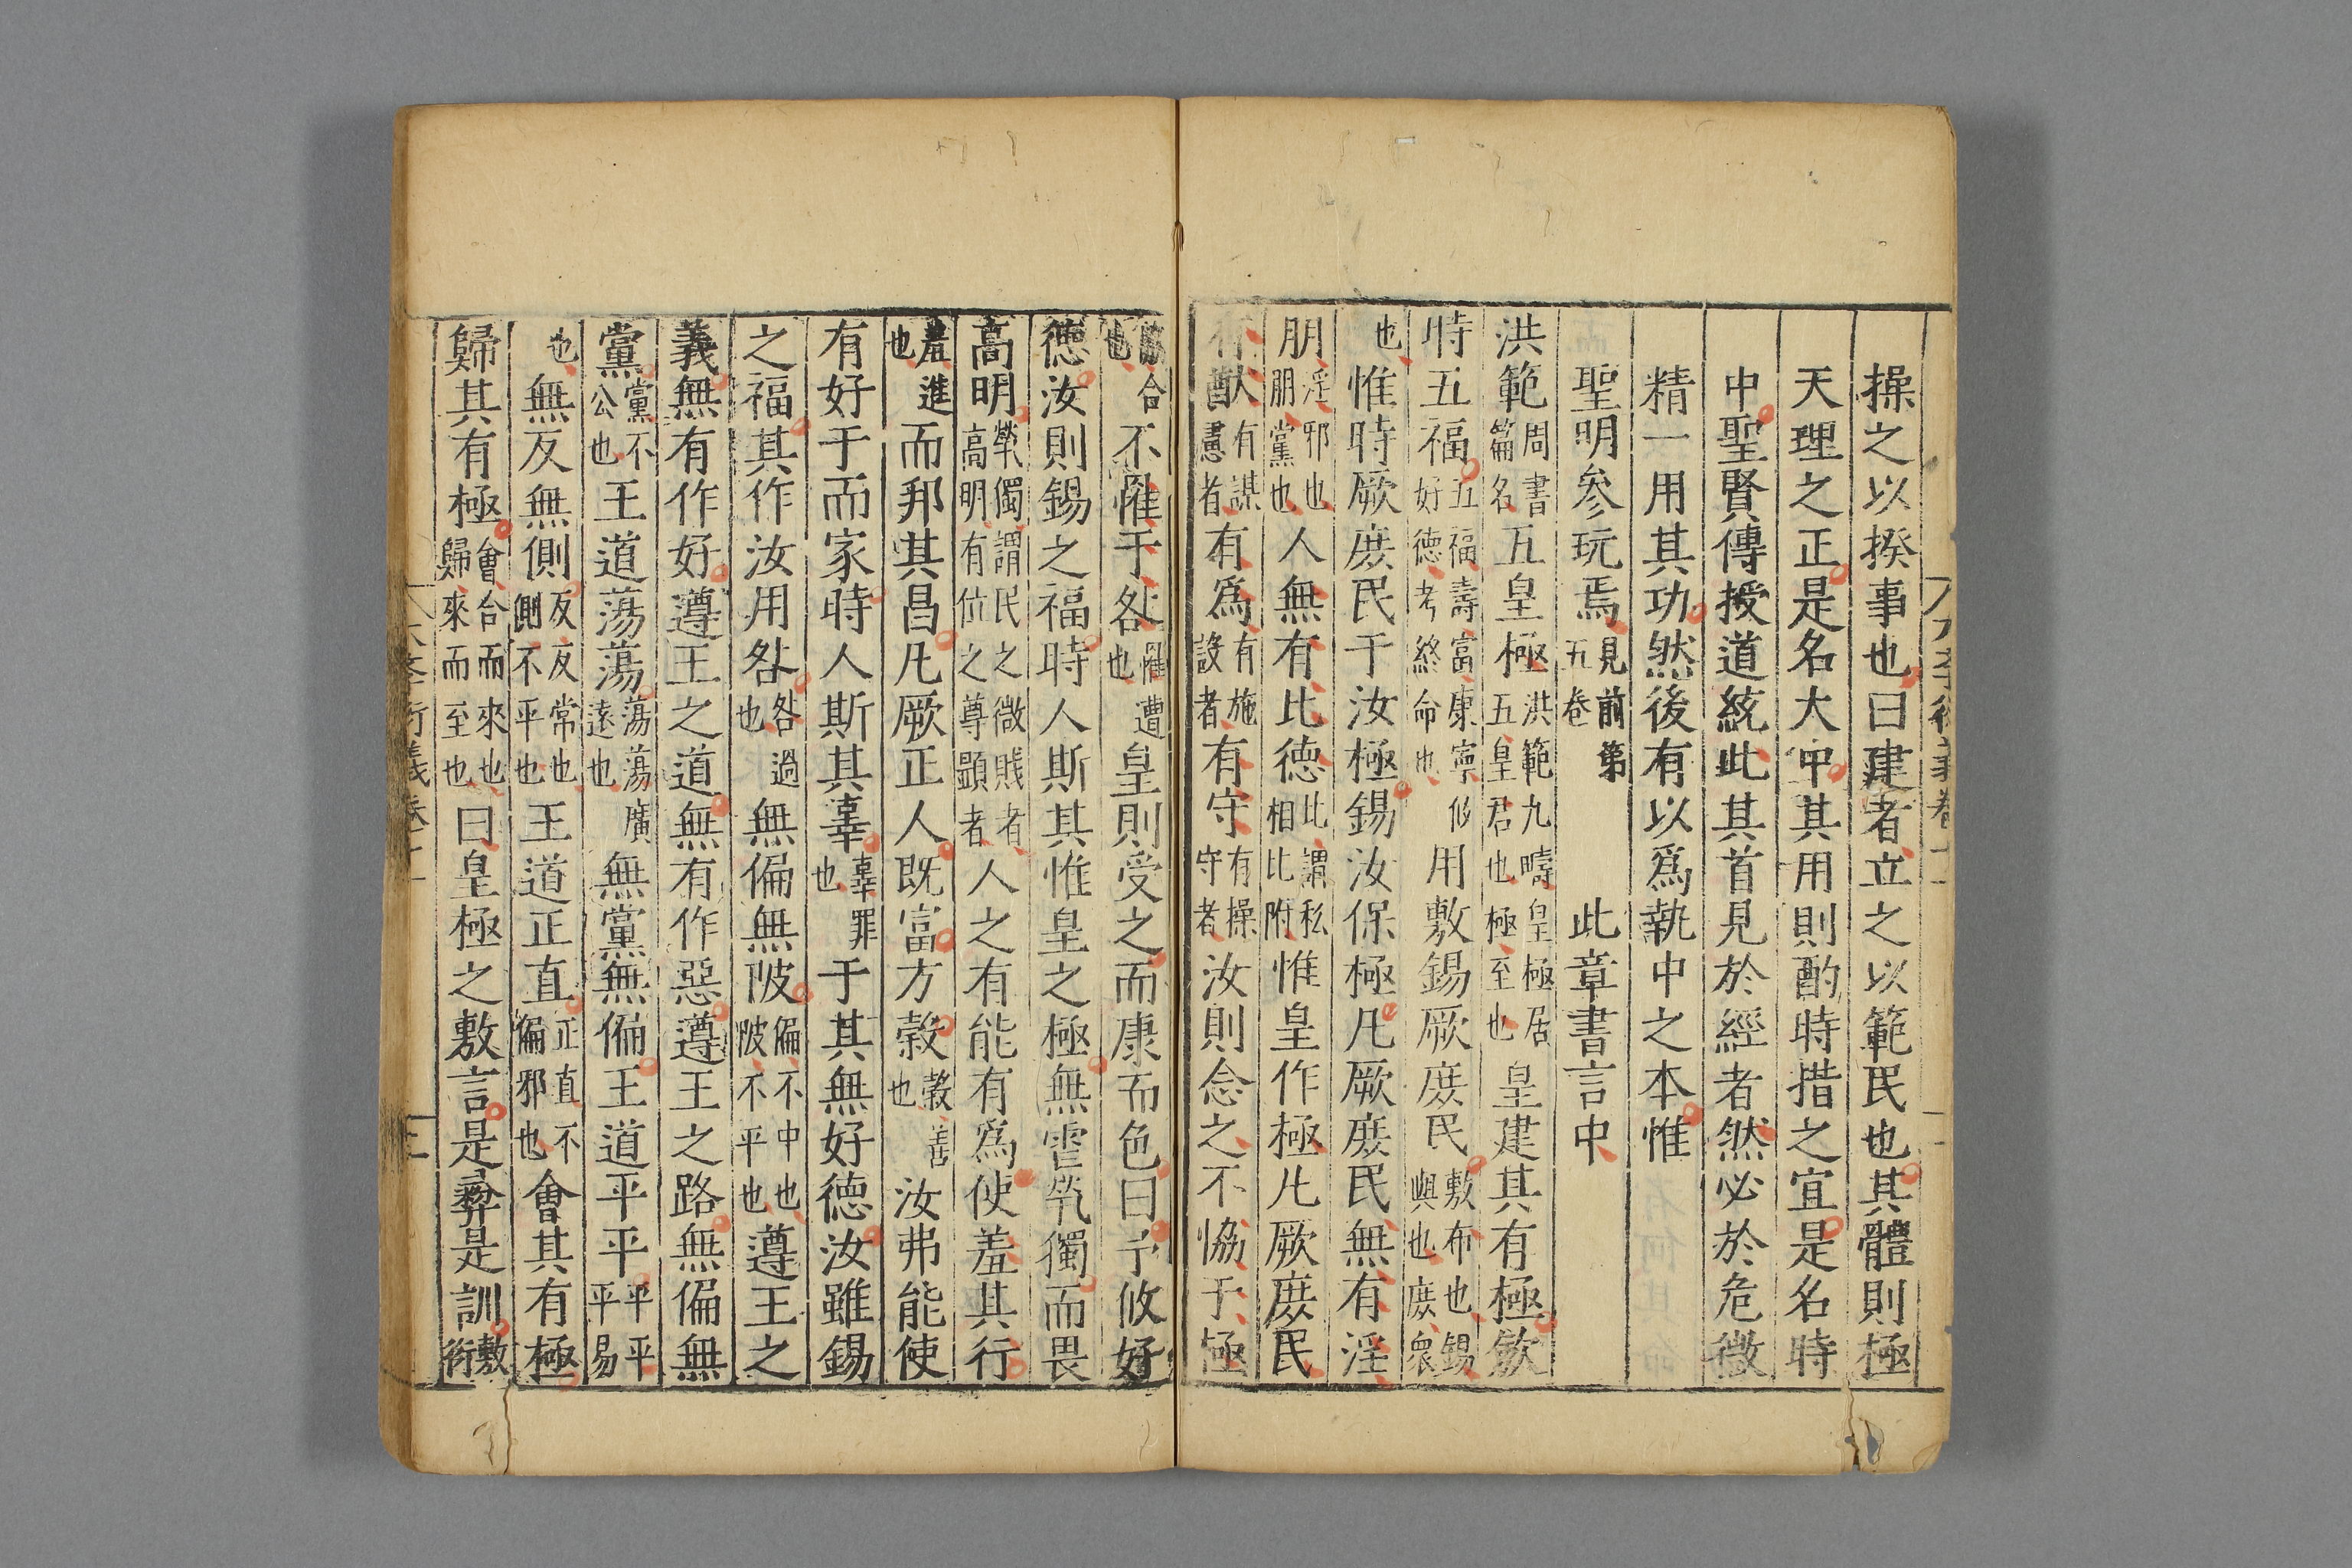 操之以揆事也曰建者立之以範民也其體則極
天理之正是名大中其用則酌時措之宜是名時
中聖賢傳授道統此其首見於經者然必於危微
精一用其功然後有以爲執中之本惟
聖明參玩焉見前第五卷 此章書言中
洪範周書篇名五皇極洪範九疇皇極居五皇君也極至也皇建其有極歛
時五福五福壽富康寧攸好德考終命也用敷錫厥庻民敷布也錫與也庻衆
也惟時厥庻民于汝極錫汝保極凡厥庻民無有淫
朋淫邪也朋黨也人無有比德比謂私相比附惟皇作極凡厥庻民
有猷有謀慮者有爲有施設者有守有操守者汝則念之不恊于極
恊合也不罹于咎罹遭也皇則受之而康而色曰予攸好
德汝則錫之福時人斯其惟皇之極無虐煢獨而畏
高明煢獨謂民之微賤者高明有位之尊顯者人之有能有爲使羞其行
羞進也而邦其昌凡厥正人既富方糓糓善也汝弗能使
有好于而家時人斯其辜辜罪也于其無好德汝雖錫
之福其作汝用咎咎過也無偏無陂偏不中也陂不平也遵王之
義無有作好遵王之道無有作惡遵王之路無偏無
黨黨不公也王道蕩蕩蕩蕩廣遠也無黨無偏王道平平平平平易
也無反無側反反常也側不平也王道正直正直不偏邪也會其有極
歸其有極會合而來也歸來而至也曰皇極之敷言是彝是訓敷衍